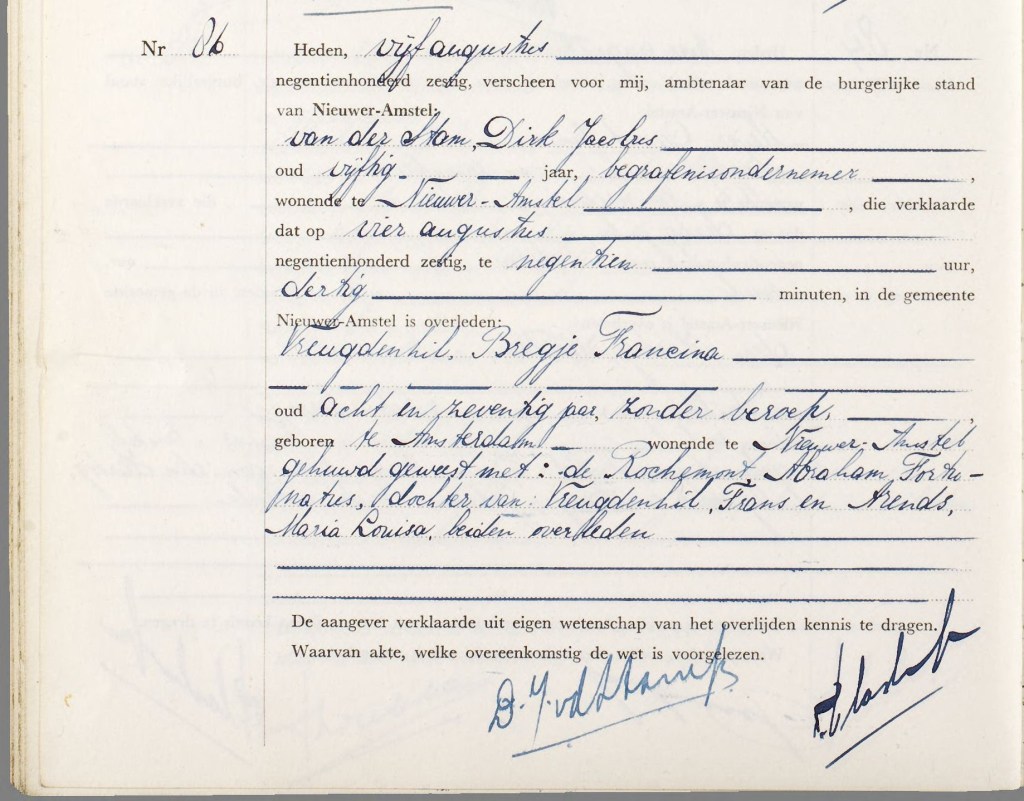 Nr 86 Heden, vijf augustus
negentienhonderd zestig, verscheen voor mij, ambtenaar van de burgerlijke stand
van Nieuwer-Amstel:
van der Stam, Dirk Jacobus
oud vijftig jaar, begrafenisondernemer,
wonende te Nieuwer-Amstel, die verklaarde
dat op vier augustus
negentienhonderd zestig, te negentien uur,
dertig minuten, in de gemeente
Nieuwer-Amstel is overleden:
Vreugdenhil, Bregje Francina
oud acht en zeventig jaar, zonder beroep,
geboren te Amsterdam wonende te Nieuwer-Amstel
gehuwd geweest met: de Rochemont, Abraham Fortu-
natus, dochter van: Vreugdenhil, Frans en Arends,
Maria Louisa, beiden overleden
De aangever verklaarde uit eigen wetenschap van het overlijden kennis te dragen.
Waarvan akte, welke overeenkomstig de wet is voorgelezen.
D. J. vd Stam